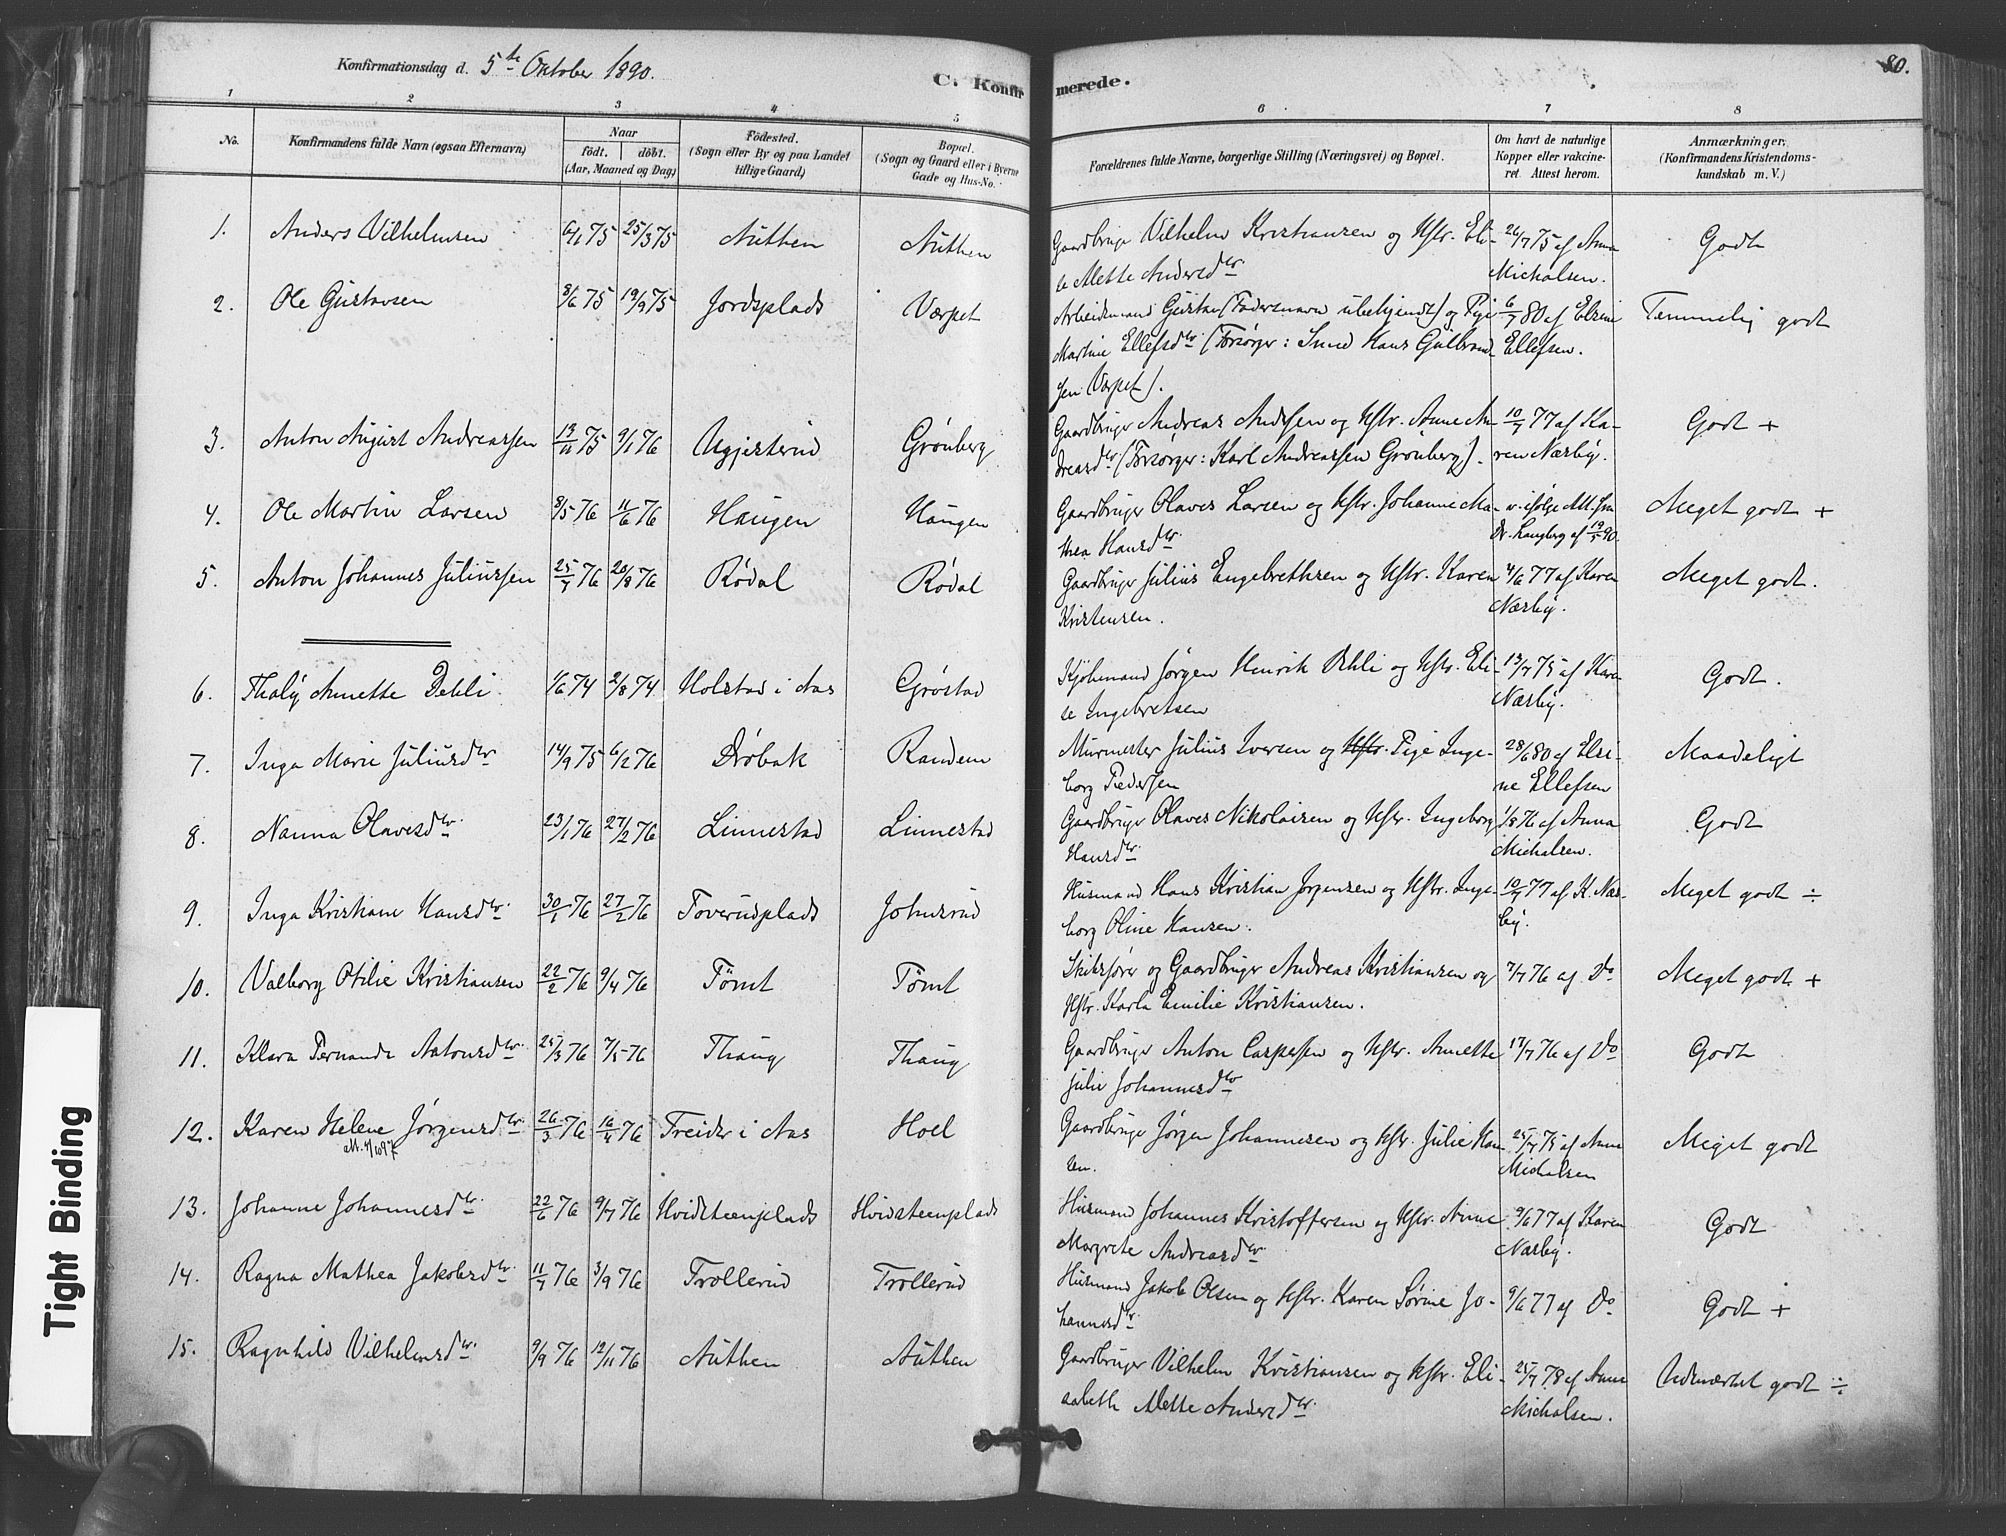 Konfirmationsdag d. 5te Oktober 1890.
C. Konfirmerede.
80.
1 2 3 4 5 6 7 8
No.
Konfirmandens fulde Navn (ogsaa Efternavn)
Naar
født. døbt.
(Aar, Maaned og Dag)
Fødested.
(Sogn eller By og paa Landet
tillige Gaard)
Bopæl.
(Sogn og Gaard eller i Byerne
Gade og Hus-No.
Forældrenes fulde Navne, borgerlige Stilling (Næringsvei) og Bopæl.
Om havt de naturlige
Kopper eller vakcine-
ret. Attest herom.
Anmærkninger.
(Konfirmandens Kristendoms-
kundskab m. V.)
1. Anders Vilhelmsen 6/1 75 25/3 75 Authen Authen Gaardbruger Vilhelm Kristiansen og Hstr. Eli- 26/7 75 af Anna Godt
se Alette Andersdtr. Michalsen.
2. Ole Gustavsen 8/6 75 19/9 75 Jordsplads Værpet Arbeidsmand Gustav (Fadersnavn ubekjendt) og Pige 6/7 80 af Elsine Temmelig godt
Martine Ellefsdtr (Forsørger: Smed Hans Gulbrand- Ellefsen.
sen Værpet).
3. Anton August Andreassen 13/11 75 9/1 76 Ugjisterud Grønberg Gaardbruger Andreas Andersen og Hstr. Anne An- 10/7 77 af Ka- Godt +
dreasdtr (Forsørger: Karl Andreassen Grønberg). ren Nærby.
4. Ole Martin Larsen 8/5 76 11/6 76 Haugen Haugen Gaardbruger Olaves Larsen og Hstr. Johanne Ma- v. ifølge Att. fra Meget godt +
thea Hansdtr Dr. Langberg af 19/5 90.
5. Anton Johannes Juliussen 25/7 76 20/8 76 Rødal Rødal Gaardbruger Julius Engebrethsen og Hstr. Karen 4/6 77 af Karen Meget godt.
Kristensen. Nærby.
6. Thaly Annette Dehli 1/6 74 2/8 74 Holstad i Aas Grøstad Kjøbmand Jørgen Henrik Dehli og Hstr. Eli- 13/7 75 af Karen Godt.
se Ingebretsen Nærby.
7. Inga Marie Juliusdtr 14/9 75 6/2 76 Drøbak Randem Murmester Julius Iversen og Hstr. Pige Inge- 28/6 80 af Elsi- Maadeligt
borg Pedersen ne Ellefsen
8. Nanna Olavesdtr. 23/1 76 27/2 76 Linnestad Linnestad Gaardbruger Olaves Nikolaisen og Hstr. Ingeborg 1/8 76 af Anna Godt
Hansdtr. Michalsen.
9. Inga Kristiane Hansdtr. 30/1 76 27/2 76 Toverudplads Johnsrud Husmand Hans Kristian Jørgensen og Hstr. Inge- 10/7 77 af K. Nær- Meget godt ÷
borg Oline Hansen. by.
10. Valborg Otilie Kristiansen 22/2 76 9/4 76 Tømt Tømt Skibsfører og Gaardbruger Andreas Kristiansen og 7/7 76 af Do Meget godt +
Hstr. Karla Emilie Kristiansen.
11. Klara Fernanda Antonsdtr. 25/3 76 7/5 76 Thaug Thaug Gaardbruger Anton Caspersen og Hstr. Annette 17/7 76 af Do Godt
Julie Johannesdtr
12. Karen Helene Jørgensdtr 26/3 76 16/4 76 Freider i Aas Hoel Gaardbruger Jørgen Johannesen og Hstr. Julie Han- 25/7 75 af Anna Meget godt
sen. Michalsen
13. Johanne Johannesdtr. 22/6 76 9/7 76 Hvidsteenplads Hvidsteenplads Husmand Johannes Kristoffersen og Hstr. Anne 9/6 77 af Karen Godt
Margrete Andreasdtr. Nærby.
14. Ragna Mathea Jakobsdtr. 11/7 76 3/9 76 Trollerud Trollerud Husmand Jakob Olsen og Hstr. Karen Sørine Jo- 9/6 77 af Do Godt +
hannesdtr.
15. Ragnhild Vilhelmsdtr. 9/9 76 12/11 76 Authen Authen Gaardbruger Vilhelm Kristiansen og Hstr. Eli- 25/7 78 af Anna Udmærket godt ÷
sabeth Alette Andersdtr. Michalsen.
Tight Binding